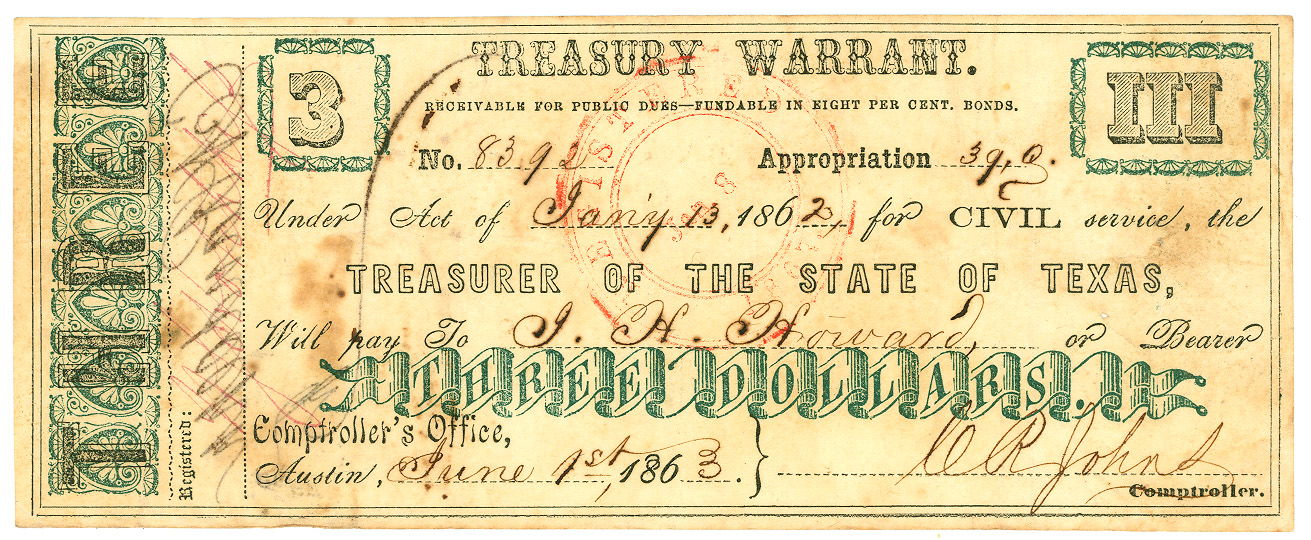 THREE
Registered:
3
TREASURY WARRANT.
III
RECEIVABLE FOR PUBLIC DUES—FUNDABLE IN EIGHT PER CENT. BONDS.
No. 8392 Appropriation 39,
Under Act of Jan'y 13, 1862, for CIVIL service, the
TREASURER OF THE STATE OF TEXAS,
Will pay To J. H. Howard, or Bearer
THREE DOLLARS.
Comptroller's Office,
Austin, June 1st, 1863. C R Johns
Comptroller.
REGISTERED